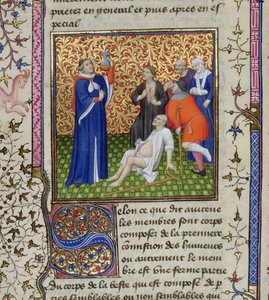 en general et puis apres en es
pecial
Selon ce que dit auicene
les membres sont corps
compose de la premiere
comistion des humeurs
ou autrement le mem
bre est une ferme partie
du corps de la beste qui est compose de
ties semblables ou non semblables qui